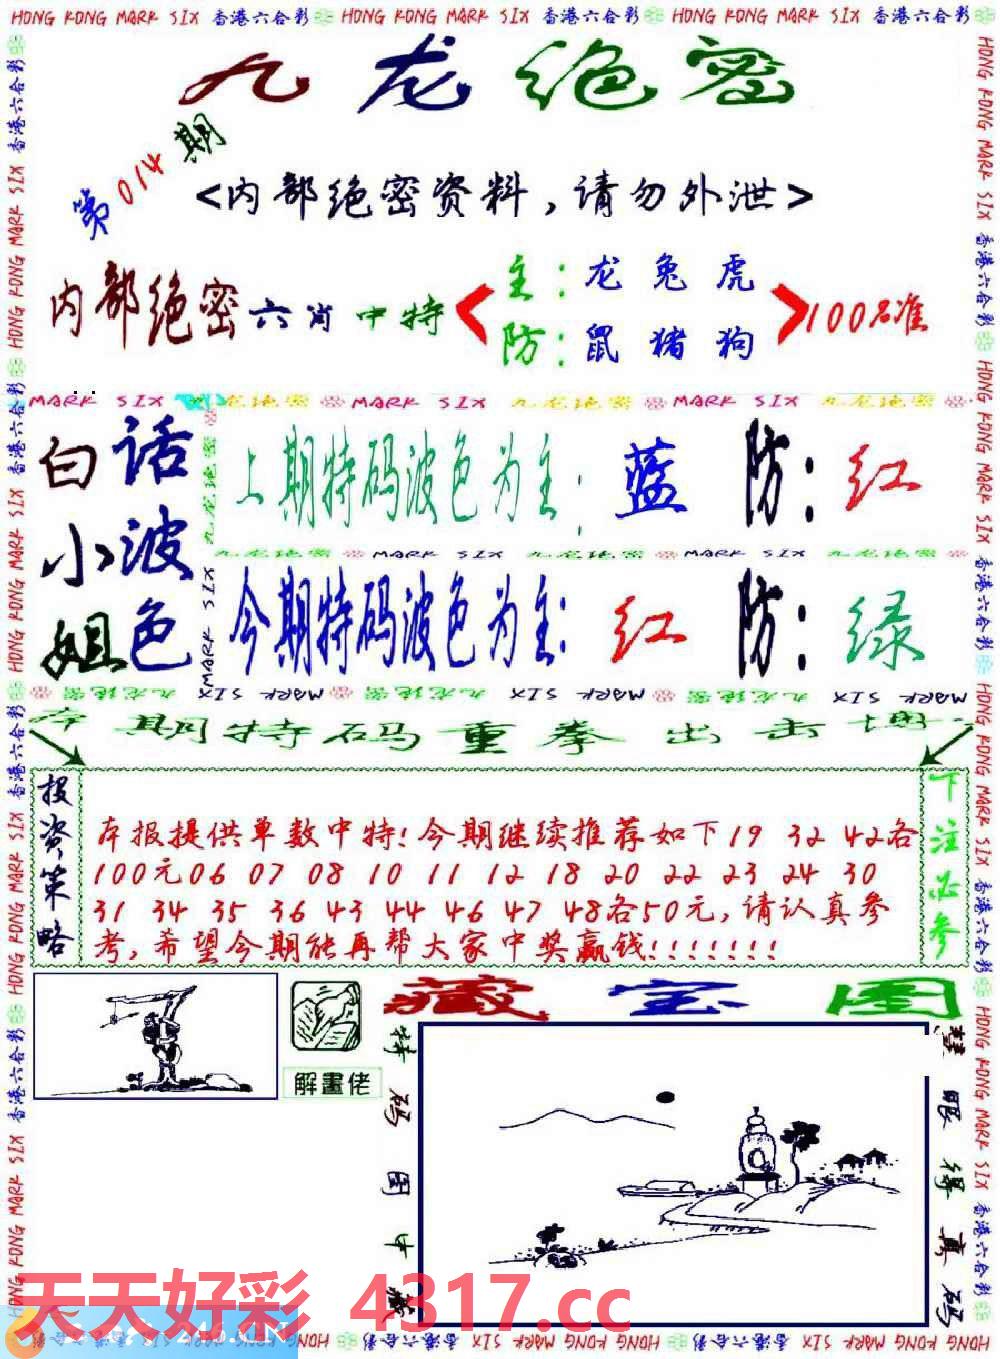 HONG KONG MARK SIX 香港六合彩 HONG KONG MARK SIX 香港六合彩 HONG KONG MARK SIX 香港六合彩
九龙绝密
第014期
<内部绝密资料,请勿外泄>
内部绝密六肖中特
主:龙兔虎
防:鼠猪狗
100%准
MARK SIX 九龙绝密 MARK SIX 九龙绝密 MARK SIX 九龙绝密
白小姐
话波色
上期特码波色为主:蓝 防:红
九龙绝密 MARK SIX 九龙绝密 MARK SIX 九龙绝密
今期特码波色为主:红 防:绿
本期特码重拳出击
投资策略
本报提供单数中特!今期继续推荐如下19 32 42各
100元06 07 08 10 11 12 18 20 22 23 24 30
31 34 35 36 43 44 46 47 48各50元,请认真参
考,希望今期能再帮大家中奖赢钱!!!!!!!
下注必参
解畫佬
藏宝图
特码图中藏
慧眼得真码
天天好彩 4317.cc